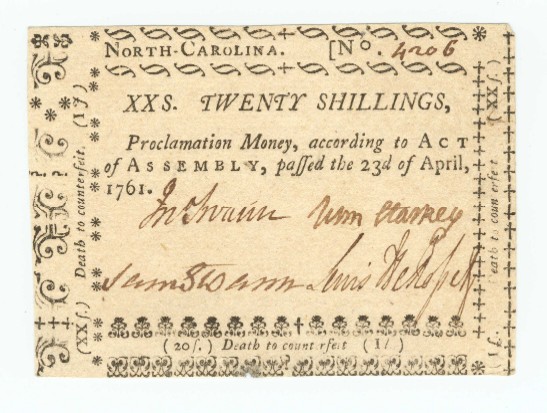 NORTH-CAROLINA. [No. 4206
XXS. TWENTY SHILLINGS,
Proclamation Money, according to ACT
of ASSEMBLY, paſſed the 23d of April,
1761.
Jno Swann Wm Starkey
Sam Swann Lewis DeRosset
(20ſ.) Death to counterfeit (1l)
(XXſ.) Death to counterfeit. (1l)
(XXſ.) Death to counterfeit (1l.